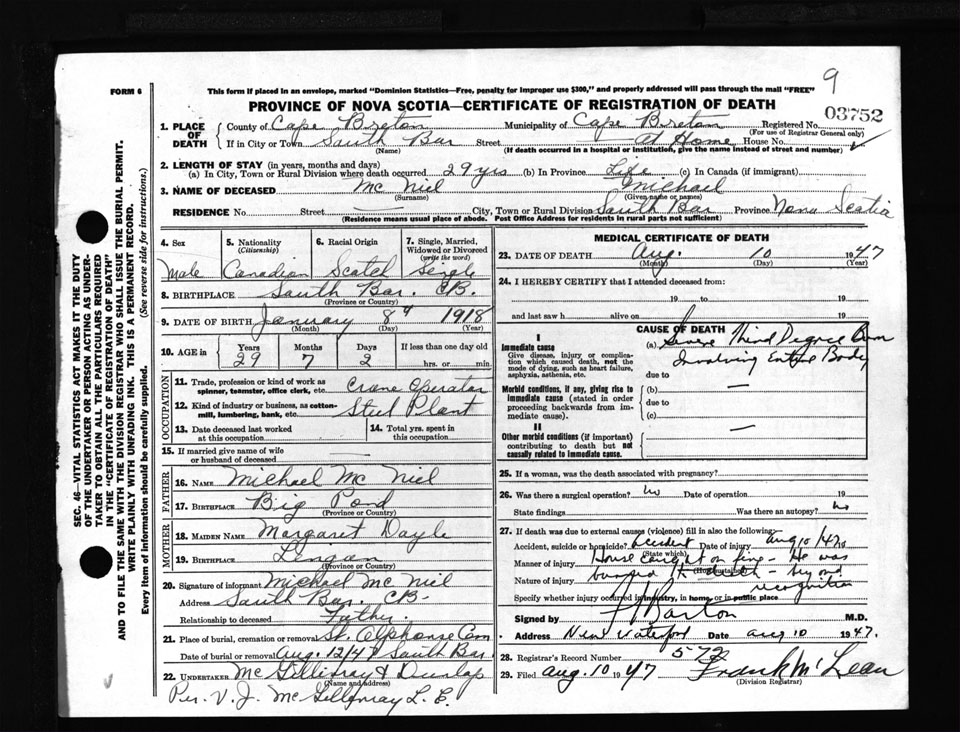 9
FORM 6
This form if placed in an envelope, marked "Dominion Statistics—Free, penalty for improper use $300," and properly addressed will pass through the mail "FREE"
PROVINCE OF NOVA SCOTIA—CERTIFICATE OF REGISTRATION OF DEATH
03752
1. PLACE OF DEATH
County of Cape Breton Municipality of Cape Breton Registered No.
(For use of Registrar General only)
If in City or Town South Bar Street at Home House No.
(Name) (If death occurred in a hospital or institution, give the name instead of street and number)
2. LENGTH OF STAY (in years, months and days)
(a) In City, Town or Rural Division where death occurred 29 yrs (b) In Province Life (c) In Canada (if immigrant)
3. NAME OF DECEASED Mc Niel Michael
(Surname) (Given name or names)
RESIDENCE No. Street — City, Town or Rural Division South Bar Province Nova Scotia
(Residence means usual place of abode. Post Office Address for residents in rural parts not sufficient)
4. Sex
Male
5. Nationality (Citizenship)
Canadian
6. Racial Origin
Scotch
7. Single, Married, Widowed or Divorced (write the word)
Single
8. BIRTHPLACE South Bar. C.B.
(Province or Country)
9. DATE OF BIRTH January 8 1918
(Month) (Day) (Year)
10. AGE in Years Months Days If less than one day old
29 7 2 hrs. or min.
OCCUPATION
11. Trade, profession or kind of work as spinner, teamster, office clerk, etc. Crane Operator
12. Kind of industry or business, as cotton-mill, lumbering, bank, etc. Steel Plant
13. Date deceased last worked at this occupation
14. Total yrs. spent in this occupation
15. If married give name of wife or husband of deceased —
FATHER
16. NAME Michael Mc Niel
17. BIRTHPLACE Big Pond
(Province or Country)
MOTHER
18. MAIDEN NAME Margaret Doyle
19. BIRTHPLACE Lingan
(Province or Country)
20. Signature of informant Michael Mc Niel
Address South Bar. CB-
Relationship to deceased Father.
21. Place of burial, cremation or removal St. Alphonse Cem
Date of burial or removal Aug. 12/47 South Bar.
22. UNDERTAKER Mc Gillivray & Dunlap
(Name and address)
Per. V. J. Mc Gillivray L. E.
MEDICAL CERTIFICATE OF DEATH
23. DATE OF DEATH Aug. 10 1947
(Month) (Day) (Year)
24. I HEREBY CERTIFY that I attended deceased from:
19 to 19
and last saw h alive on 19
CAUSE OF DEATH
I
Immediate cause (a) Severe Third Degree Burn
Give disease, injury or complication which caused death, not the mode of dying, such as heart failure, asphyxia, asthenia, etc.
due to Involving Entire Body
Morbid conditions, if any, giving rise to immediate cause (stated in order proceeding backwards from immediate cause).
(b) —
due to
(c)
II
Other morbid conditions (if important) contributing to death but not causally related to immediate cause.
—
25. If a woman, was the death associated with pregnancy?
26. Was there a surgical operation? no Date of operation 19
State findings Was there an autopsy? no
27. If death was due to external causes (violence) fill in also the following:—
Accident, suicide or homicide? accident Date of injury Aug 10 1947
(State which)
Manner of injury House caught on fire — He was
Nature of injury burned to death — beyond
recognition
Specify whether injury occurred in industry, in home, or in public place
Signed by Barton M.D.
Address New Waterford Date Aug 10 1947.
28. Registrar's Record Number 572
29. Filed Aug. 10 1947 Frank McLean
(Division Registrar)
SEC. 46—VITAL STATISTICS ACT MAKES IT THE DUTY
OF THE UNDERTAKER OR PERSON ACTING AS UNDERTAKER TO OBTAIN ALL THE PARTICULARS REQUIRED
IN THE "CERTIFICATE OF REGISTRATION OF DEATH"
AND TO FILE THE SAME WITH THE DIVISION REGISTRAR WHO SHALL ISSUE THE BURIAL PERMIT.
WRITE PLAINLY WITH UNFADING INK. THIS IS A PERMANENT RECORD.
Every item of information should be carefully supplied. (See reverse side for instructions.)